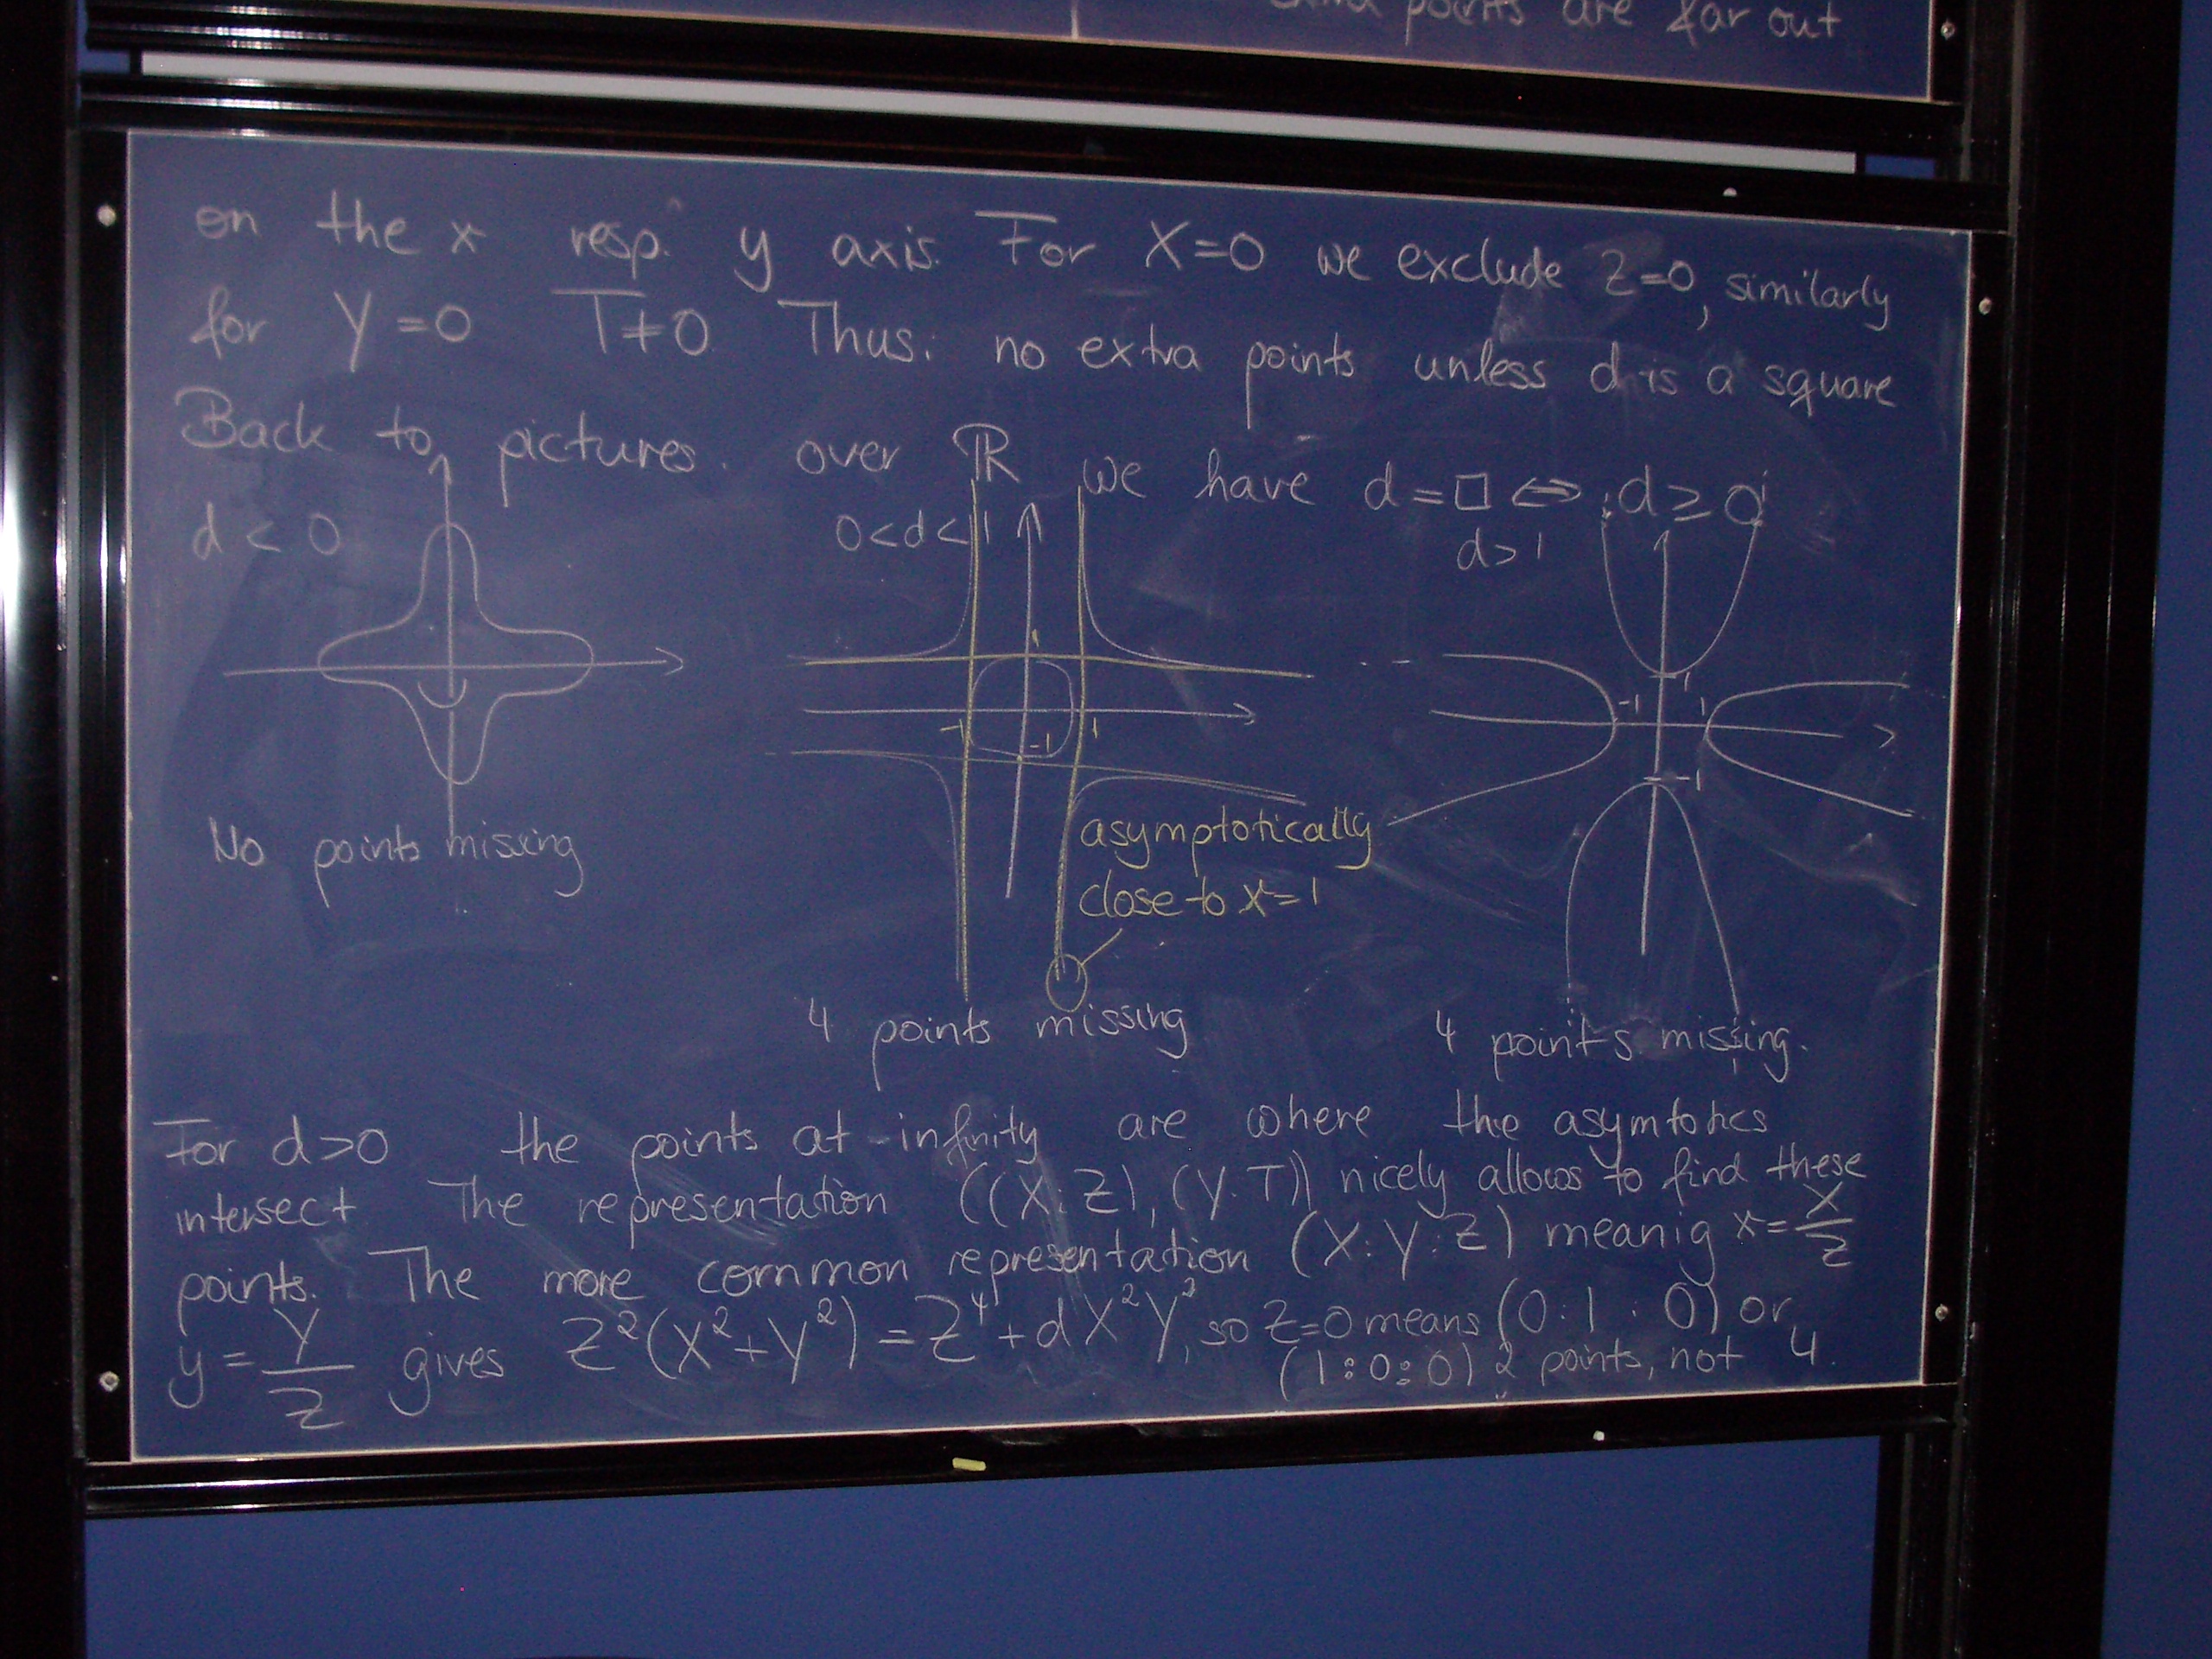 points are far out
on the x resp. y axis. For X=0 we exclude Z=0, similarly
for Y=0 T≠0. Thus: no extra points unless d is a square
Back to pictures. over ℝ we have d=□ ⇔ d≥0
d<0
0<d<1
d>1
1
-1
-1
1
1
-1
1
-1
No points missing
asymptotically
close to x=1
4 points missing
4 points missing.
For d>0 the points at infinity are where the asymtotics
intersect. The representation ((X:Z),(Y:T)) nicely allows to find these
points. The more common representation (X:Y:Z) meanig x=X/Z
y=Y/Z gives Z²(X²+Y²)=Z⁴+dX²Y², so Z=0 means (0:1:0) or
(1:0:0) 2 points, not 4.